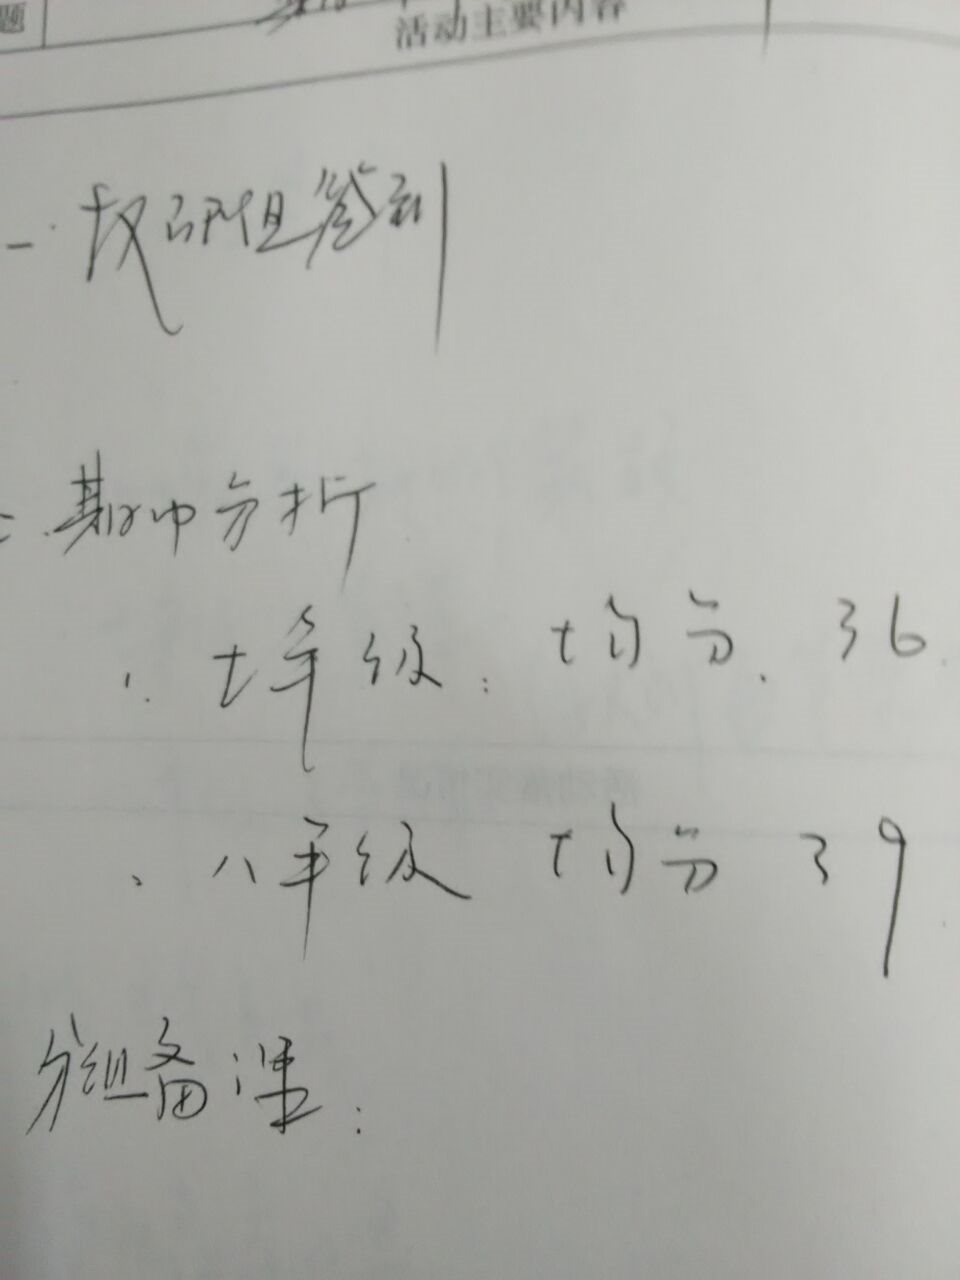 题
活动主要内容
一. 教研组签到
二. 期中分析
1. 七年级: 均分. 36.
、八年级 均分 39
分组备课: